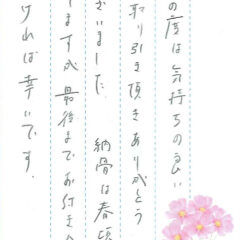 の度は気持ちの良い
取り引き頂きありがとう
ざいました 納骨は春頃
ますが最後までお付き合
ければ幸いです.